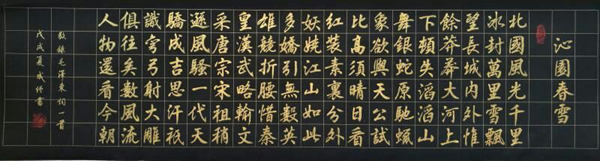 沁園春雪
北國風光千里
冰封萬里雪飄
望長城內外惟
餘莽莽大河上
下頓失滔滔山
舞銀蛇原馳蠟
象欲與天公試
比高須晴日看
紅裝素裹分外
妖嬈江山如此
多嬌引無數英
雄競折腰惜秦
皇漢武略輸文
采唐宗宋祖稍
遜風騷一代天
驕成吉思汗祇
識彎弓射大雕
俱往矣數風流
人物還看今朝
敬錄毛澤東詞一首
戊戌夏成書